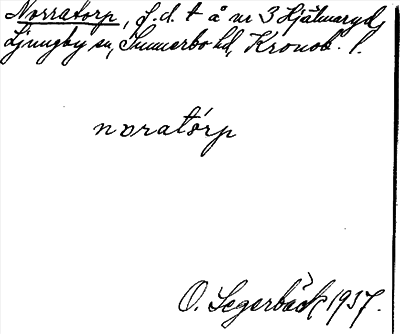 Norratorp, f.d. t å nr 3 Hjälmaryd,
Ljungby sn, Sunnerbo hd, Kronob. l.
noratórp
O. Segerbäck 1937.